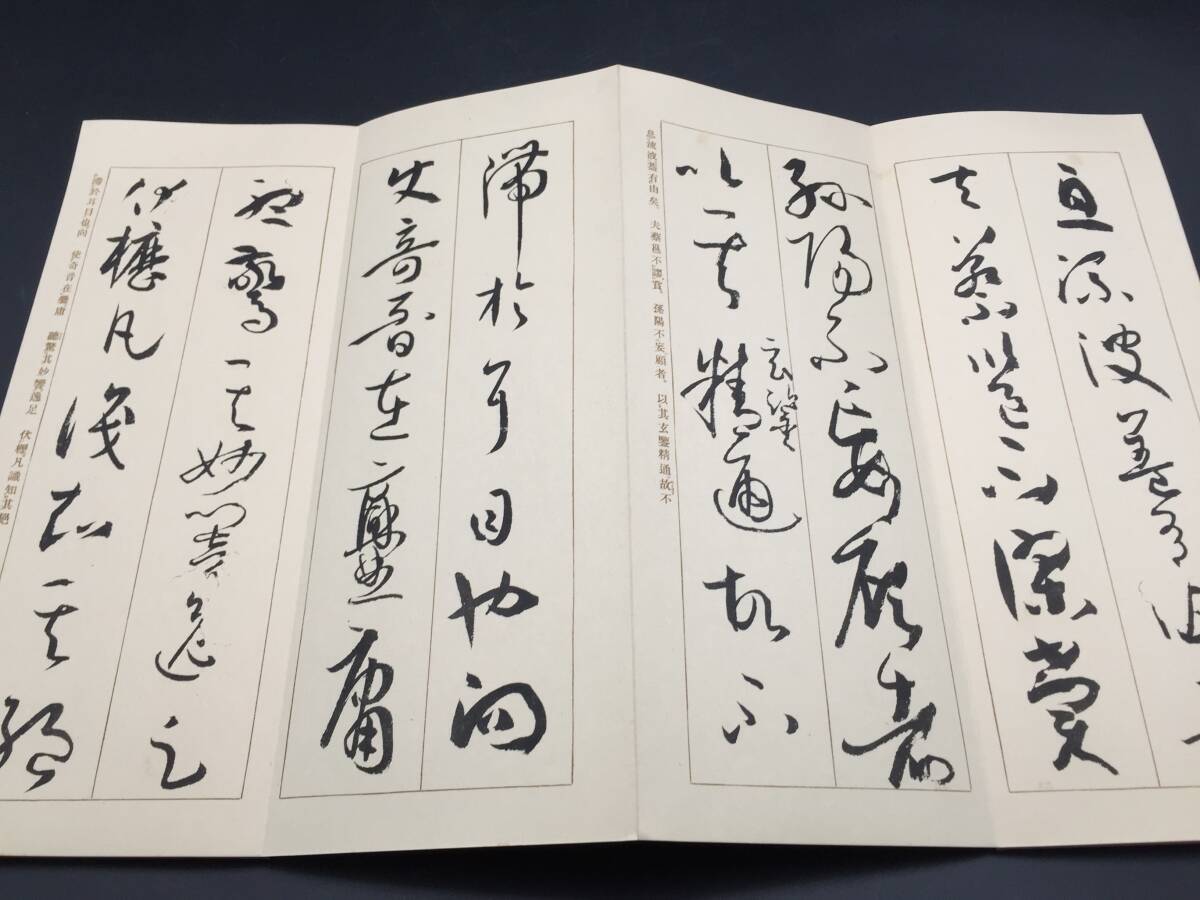 息流波蓋有由矣
夫蔡邕不謬賞
孫陽不妄顧者
以其玄鑒精通故不
息流波蓋有由矣、夫蔡邕不謬賞、孫陽不妄顧者、以其玄鑒精通、故不
滯於耳目也向
使奇音在爨庸
聽驚其妙響逸足
伏櫪凡識知其絕
滯於耳目也向 使奇音在爨庸 聽驚其妙響逸足 伏櫪凡識知其絕